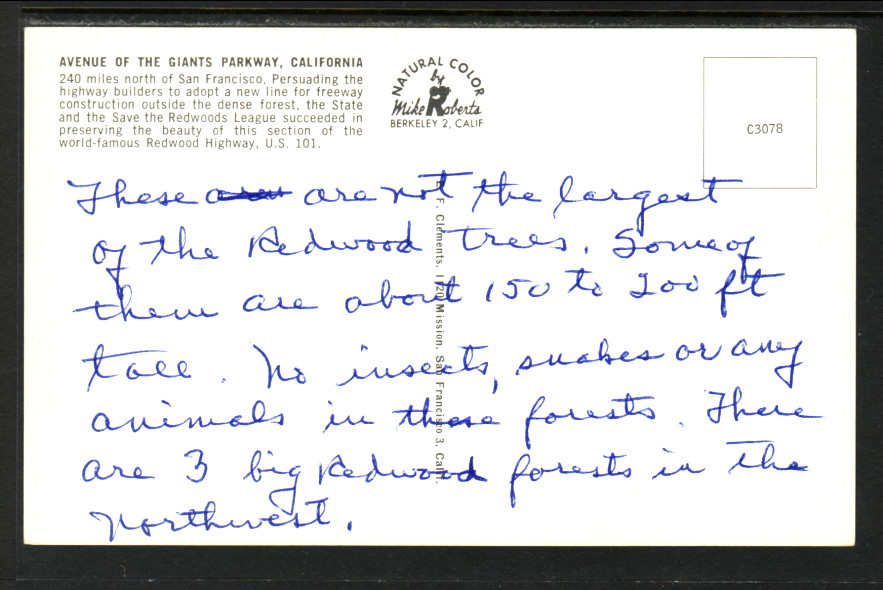 AVENUE OF THE GIANTS PARKWAY, CALIFORNIA
240 miles north of San Francisco. Persuading the
highway builders to adopt a new line for freeway
construction outside the dense forest, the State
and the Save the Redwoods League succeeded in
preserving the beauty of this section of the
world-famous Redwood Highway, U.S. 101.
NATURAL COLOR
by
Mike Roberts
BERKELEY 2, CALIF
C3078
F. Clements, 1120 Mission, San Francisco 3, Calif.
These are not the largest
of the Redwood trees. Some of
them are about 150 to 200 ft
tall. No insects, snakes or any
animals in these forests. There
are 3 big Redwood forests in the
northwest.